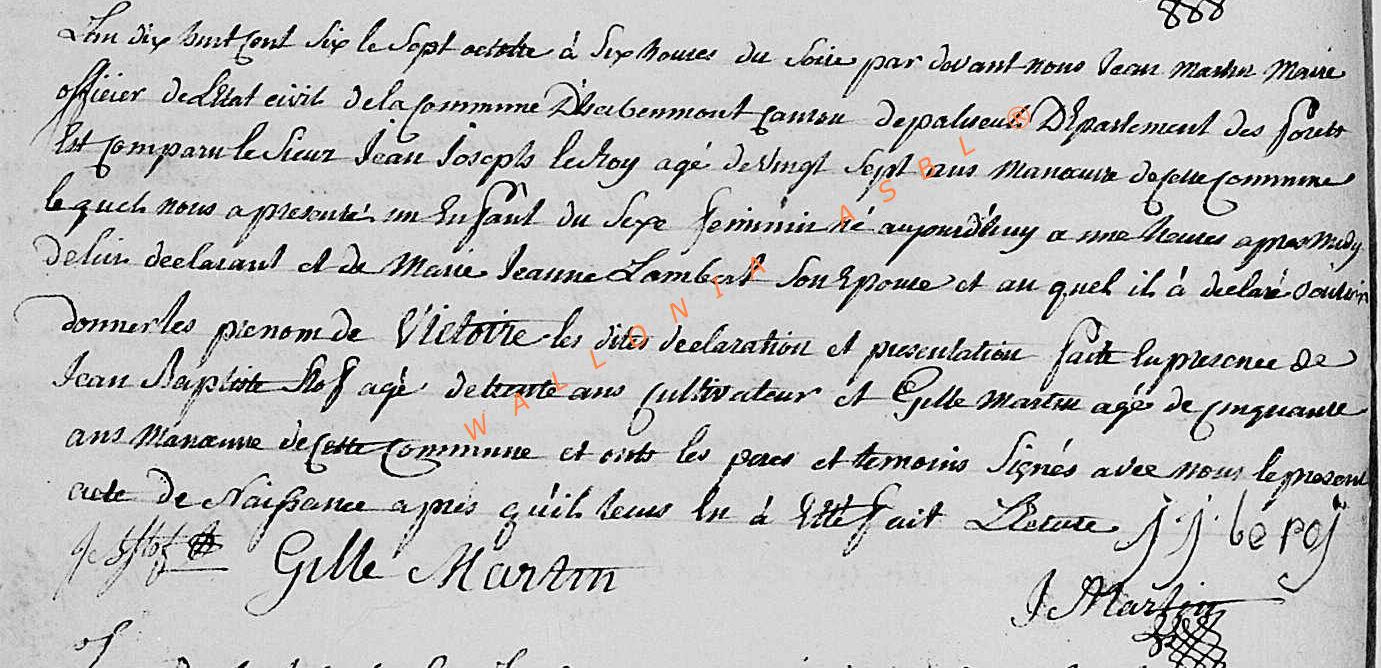 L'an dix huit cent six le sept octobre à six heures du soire par devant nous Jean Martin Maire
officier de L'Etat civil de la commune D'herbeumont canton de paliseul Département des forets
Est comparu le Sieur Jean Joseph le Roy agé de vingt sept ans Manœuvre de cette Commune
le quel nous a presenté un Enfant du Sexe feminin né aujourd'huy a une heures apres midy
de lui declarant et de Marie Jeanne Lambert son Epouse et au quel il à declaré vouloir
donner les prenom de Victoire les dites declaration et presentation faite En presence de
Jean Baptiste agé de trente ans cultivateur et Gille Martin agé de cinquante
ans Manœuvre de cette Commune et onts les peres et temoins Signés avec nous le present
acte de Naissance apres qu'il leurs En à Etté fait Lecture j. j. le roj
Gille Martin
J Martin
WALLONIA ASBL ®